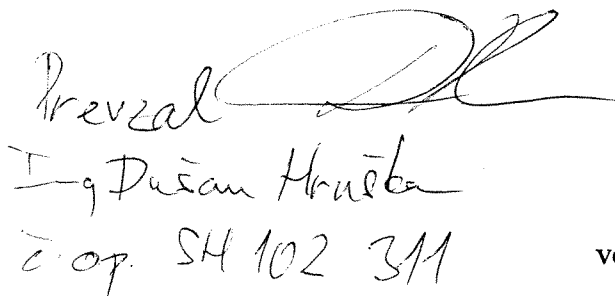 Prevzal
Ing Dušan Hruška
č. op. SH 102 311